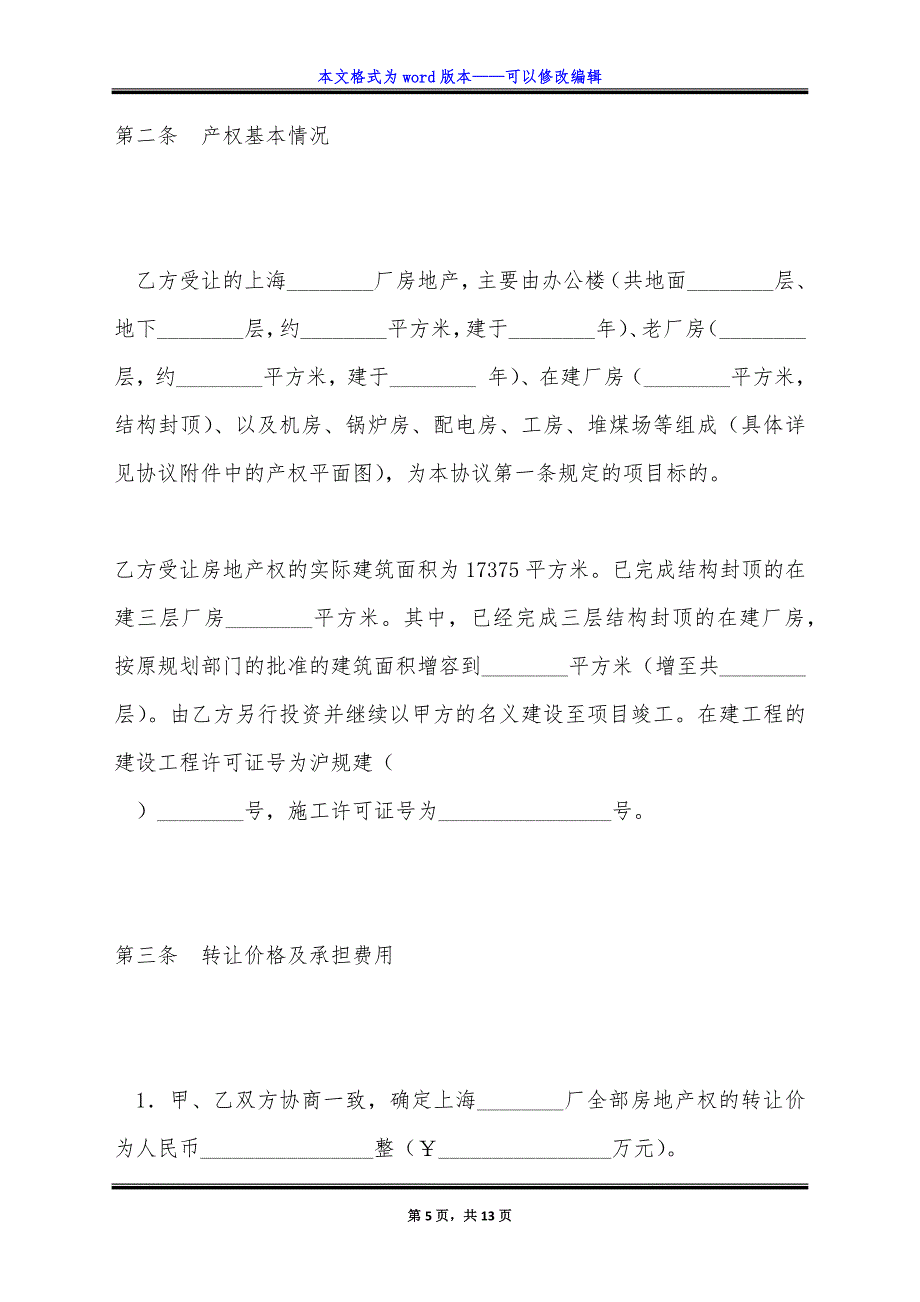 本文格式为 word 版本——可以修改编辑
第二条　产权基本情况
乙方受让的上海________厂房地产，主要由办公楼（共地面________层、
地下________层，约________平方米，建于________年）、老厂房（________
层，约________平方米，建于________ 年）、在建厂房（________平方米，
结构封顶）、以及机房、锅炉房、配电房、工房、堆煤场等组成（具体详
见协议附件中的产权平面图），为本协议第一条规定的项目标的。
乙方受让房地产权的实际建筑面积为 17375 平方米。已完成结构封顶的在
建三层厂房________平方米。其中，已经完成三层结构封顶的在建厂房，
按原规划部门的批准的建筑面积增容到________平方米（增至共________
层）。由乙方另行投资并继续以甲方的名义建设至项目竣工。在建工程的
建设工程许可证号为沪规建（
）________号，施工许可证号为________________号。
第三条　转让价格及承担费用
1．甲、乙双方协商一致，确定上海________厂全部房地产权的转让价
为人民币________________整（￥________________万元）。
第 5 页，共 13 页